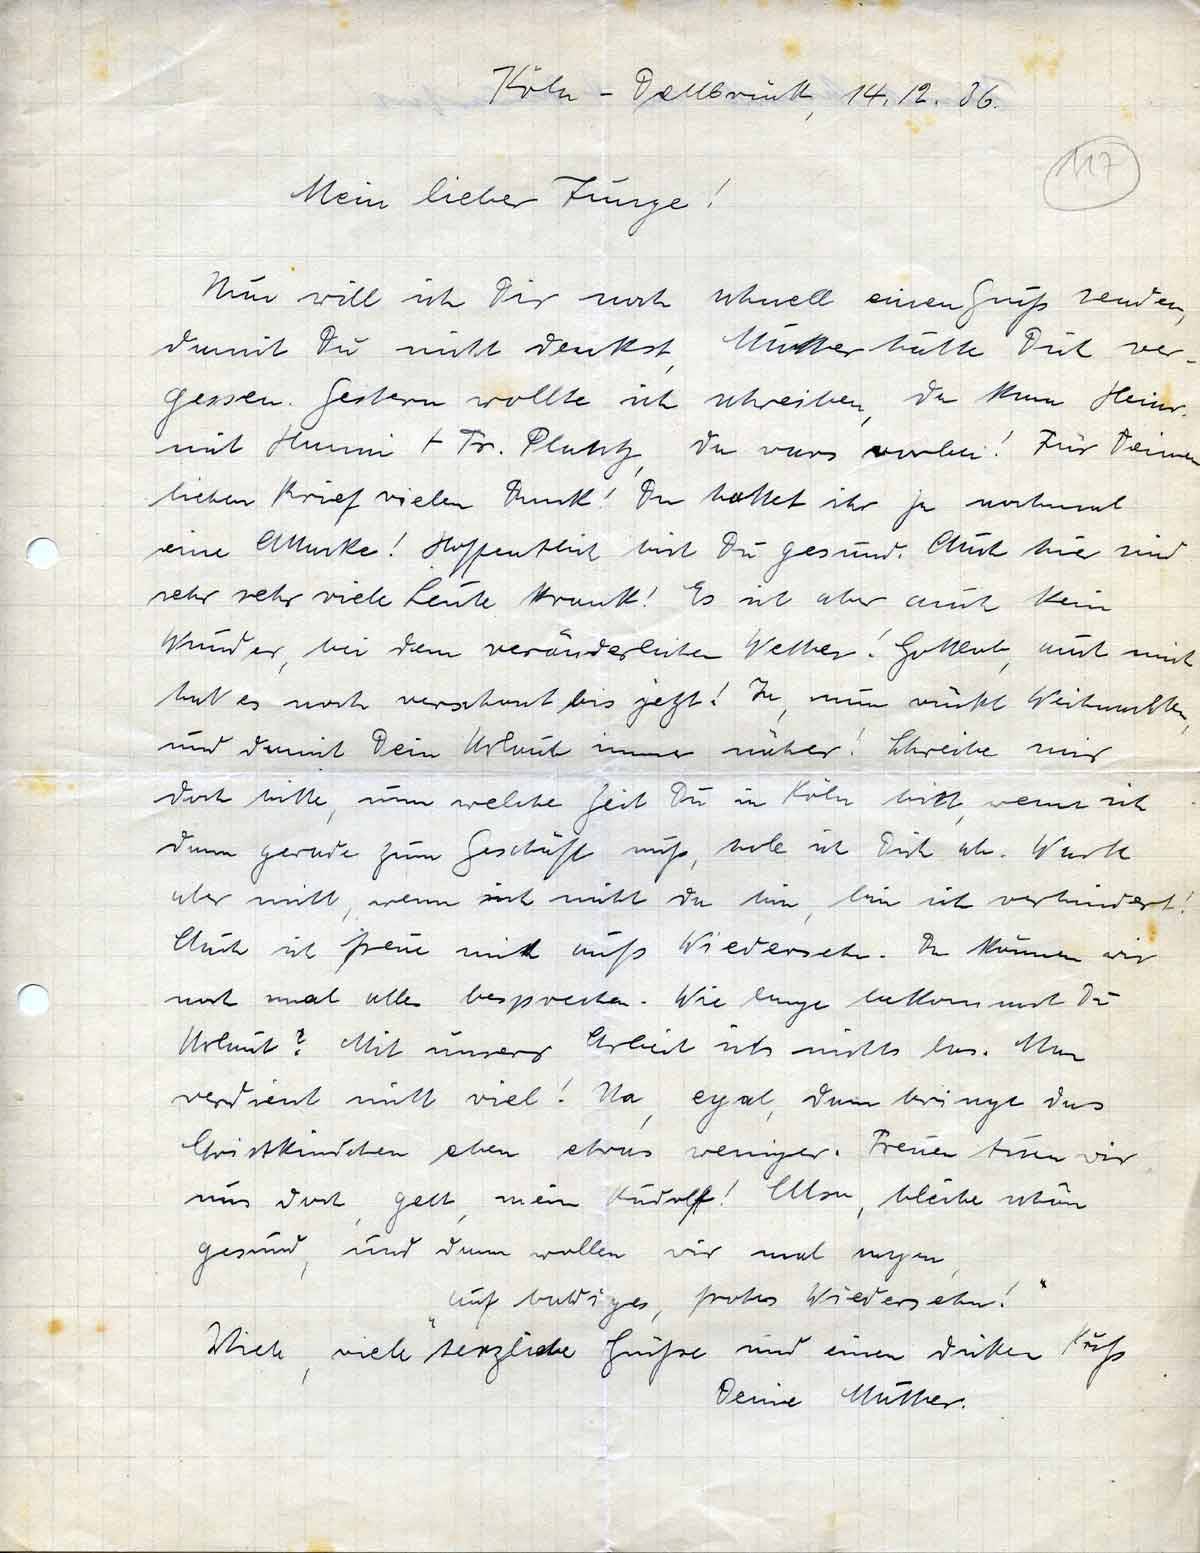 Köln - Dellbrück, 14.12.36.
117
Mein lieber Junge!
Nun will ich Dir noch schnell einen Gruß senden,
damit Du nicht denkst, Mutter hätte Dich ver-
gessen. Gestern wollte ich schreiben, da kam Heinr.
mit Hanni + Fr. da wars vorbei! Für Deinen
lieben Brief vielen Dank! Da hattet ihr ja nochmal
eine Hoffentlich bist Du gesund. Auch hier sind
sehr sehr viele Leute krank! Es ist aber auch kein
Wunder, bei dem veränderlichen Wetter! Gottlob, auch mich
hat es noch verschont bis jetzt! Ja, nun rückt Weihnachten,
und damit Dein Urlaub immer näher! Schreibe mir
doch bitte, um welche Zeit Du in Köln bist, wenn ich
dann gerade zum Geschäft muß, hole ich Dich ab. Warte
aber nicht, wenn ich nicht da bin, bin ich verhindert!
Auch ich freue mich aufs Wiedersehn. Da können wir
noch mal alles besprechen. Wie lange bekommst Du
Urlaub? Mit unserer Arbeit ists nichts los. Man
verdient nicht viel! Na, egal, dann bringt das
Christkindchen eben etwas weniger. Freuen tuen wir
uns doch, gelt, mein Rudolf! Also, bleibe schön
gesund, und dann wollen wir mal sagen,
"auf baldiges, frohes Wiedersehn!"
Viele, viele herzliche Grüße und einen dicken Kuß
Deine Mutter.